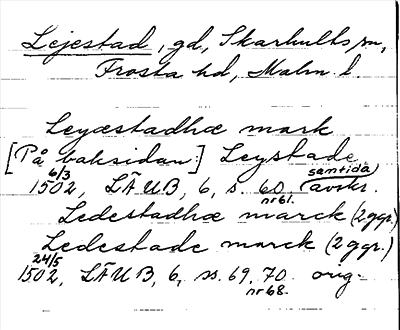 Lejestad, gd, Skarhults sn,
Frosta hd, Malm. l.
Leyæstadhæ mark
[På baksidan:] Leystade
6/3 1502, LÄUB, 6, s. 60 nr 61. (samtida avskr.
Ledestadhæ marck (2 ggr.)
Ledestade marck (2 ggr.)
24/5 1502, LÄUB, 6, ss. 69, 70 nr 68. orig.